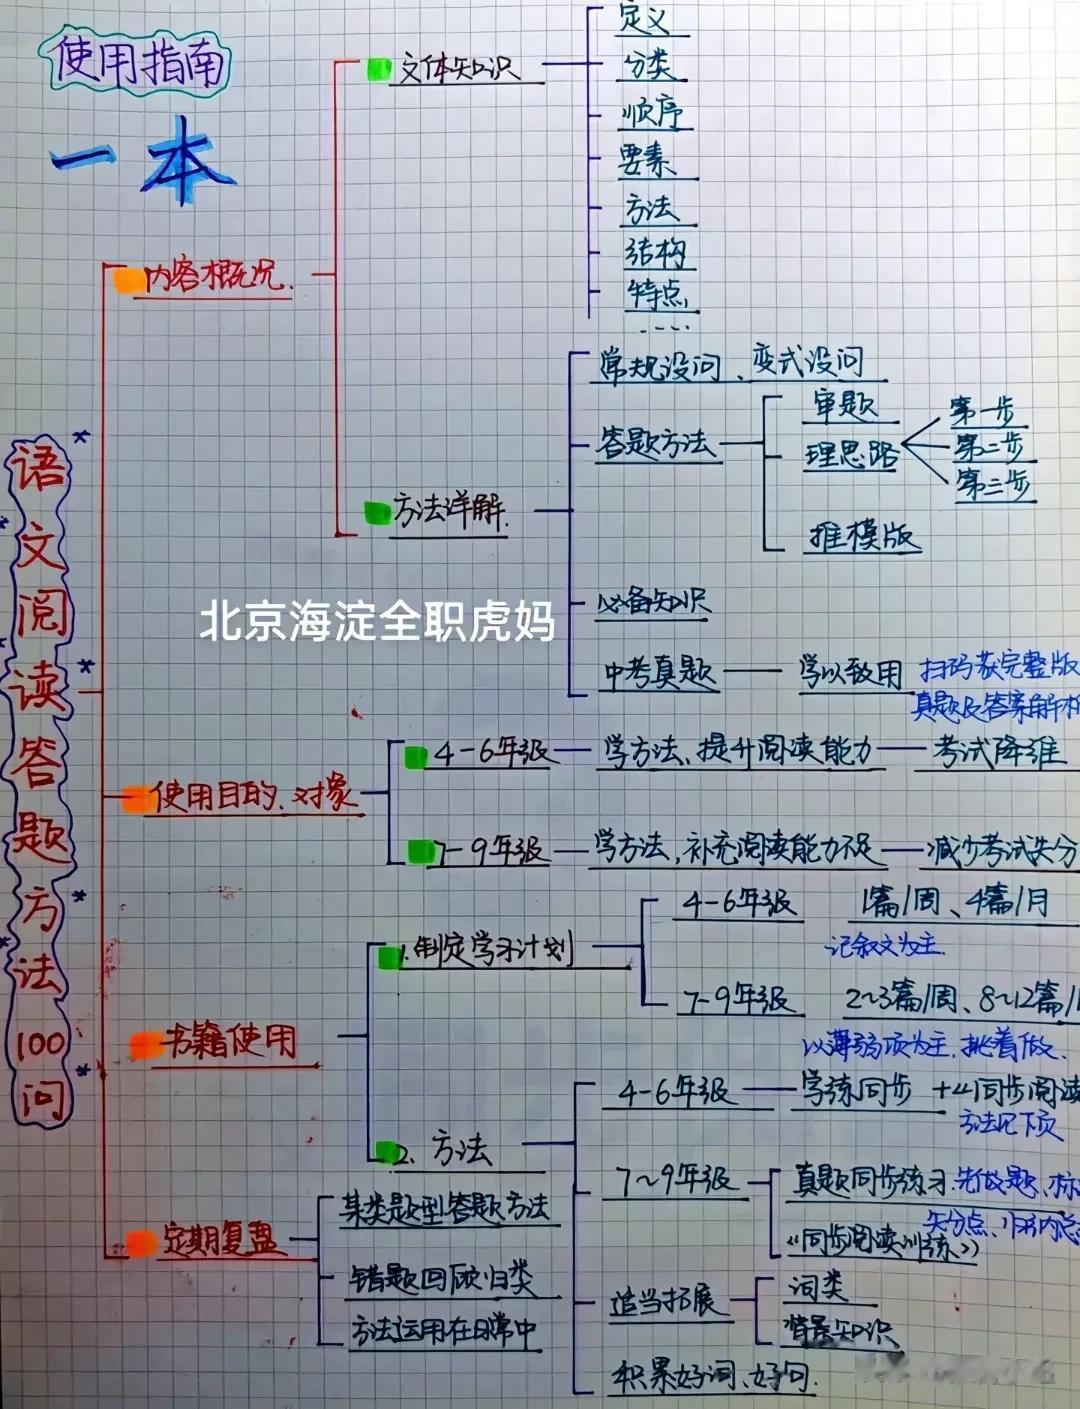 使用指南
一本
语文阅读答题方法100问
内容概况.
文体知识
定义
分类
顺序
要素
方法
结构
特点
....
方法详解.
常规设问、变式设问
答题方法
审题
理思路
第一步
第二步
第三步
推模版
必备知识
中考真题
学以致用
扫码获完整版
真题及答案解析
北京海淀全职虎妈
使用目的、对象
4-6年级
学方法、提升阅读能力
考试降难
7-9年级
学方法,补充阅读能力不足
减少考试失分
书籍使用
1.制定学习计划
4-6年级
1篇/周、4篇/月
记叙文为主.
7-9年级
2~3篇/周、8~12篇/
以薄弱项为主,挑着做.
2.方法
4-6年级
学练同步
+《同步阅读
方法见下页
7~9年级
真题同步练习.先做题、标
失分点、归纳总
《同步阅读训练》
适当拓展
词类
背景知识
积累好词、好句.
定期复盘
某类题型答题方法
错题回顾归类
方法运用在日常中